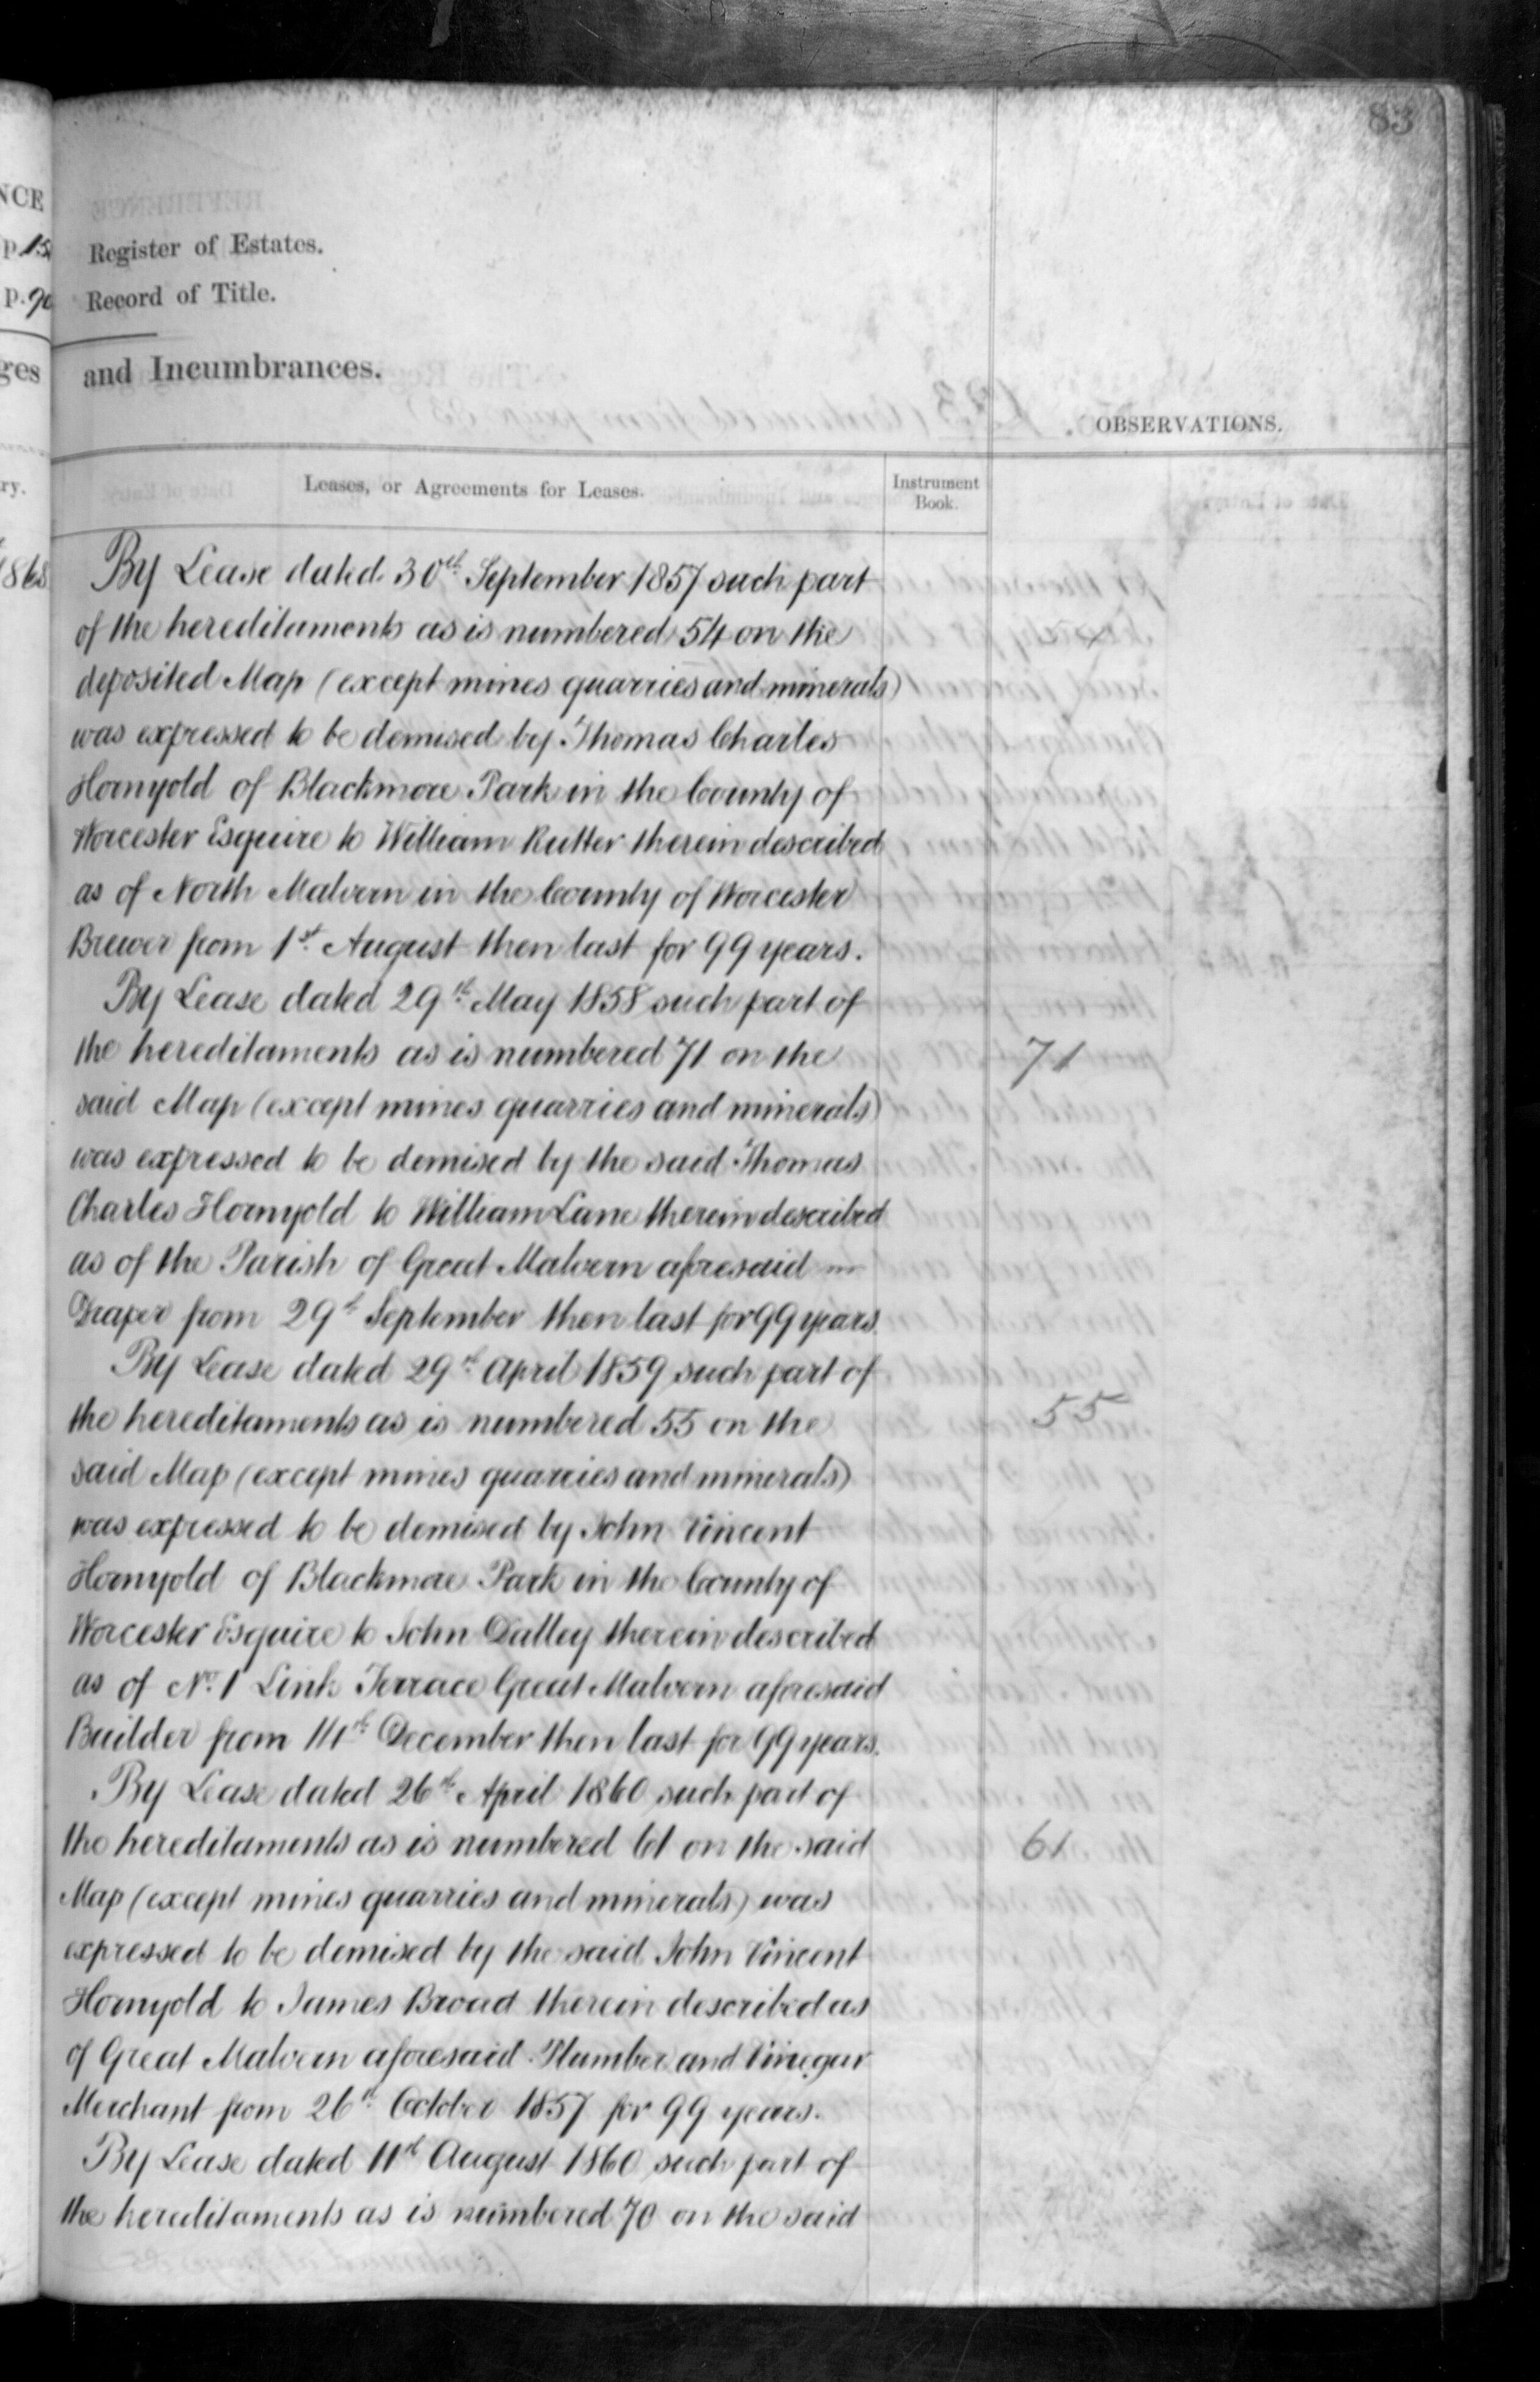 83
NCE
p. 15
Register of Estates.
p. 90
Record of Title.
ges
and Incumbrances.
OBSERVATIONS.
ry.
Leases, or Agreements for Leases.
Instrument
Book.
1868
By Lease dated 30th September 1857 such part
of the hereditaments as is numbered 54 on the
deposited Map (except mines quarries and minerals)
was expressed to be demised by Thomas Charles
Hornyold of Blackmore Park in the County of
Worcester Esquire to William Rutter therein described
as of North Malvern in the County of Worcester
Brewer from 1st August then last for 99 years.
By Lease dated 29th May 1858 such part of
the hereditaments as is numbered 71 on the
71
said Map (except mines quarries and minerals)
was expressed to be demised by the said Thomas
Charles Hornyold to William Lane therein described
as of the Parish of Great Malvern aforesaid
Draper from 29th September then last for 99 years.
By Lease dated 29th April 1859 such part of
the hereditaments as is numbered 55 on the
55
said Map (except mines quarries and minerals)
was expressed to be demised by John Vincent
Hornyold of Blackmore Park in the County of
Worcester Esquire to John Dalley therein described
as of No. 1 Link Terrace Great Malvern aforesaid
Builder from December then last for 99 years.
By Lease dated 26th April 1860 such part of
the hereditaments as is numbered 61 on the said
61
Map (except mines quarries and minerals) was
expressed to be demised by the said John Vincent
Hornyold to James Broad therein described as
of Great Malvern aforesaid Plumber and Vinegar
Merchant from 26th October 1857 for 99 years.
By Lease dated 11th August 1860 such part of
the hereditaments as is numbered 70 on the said